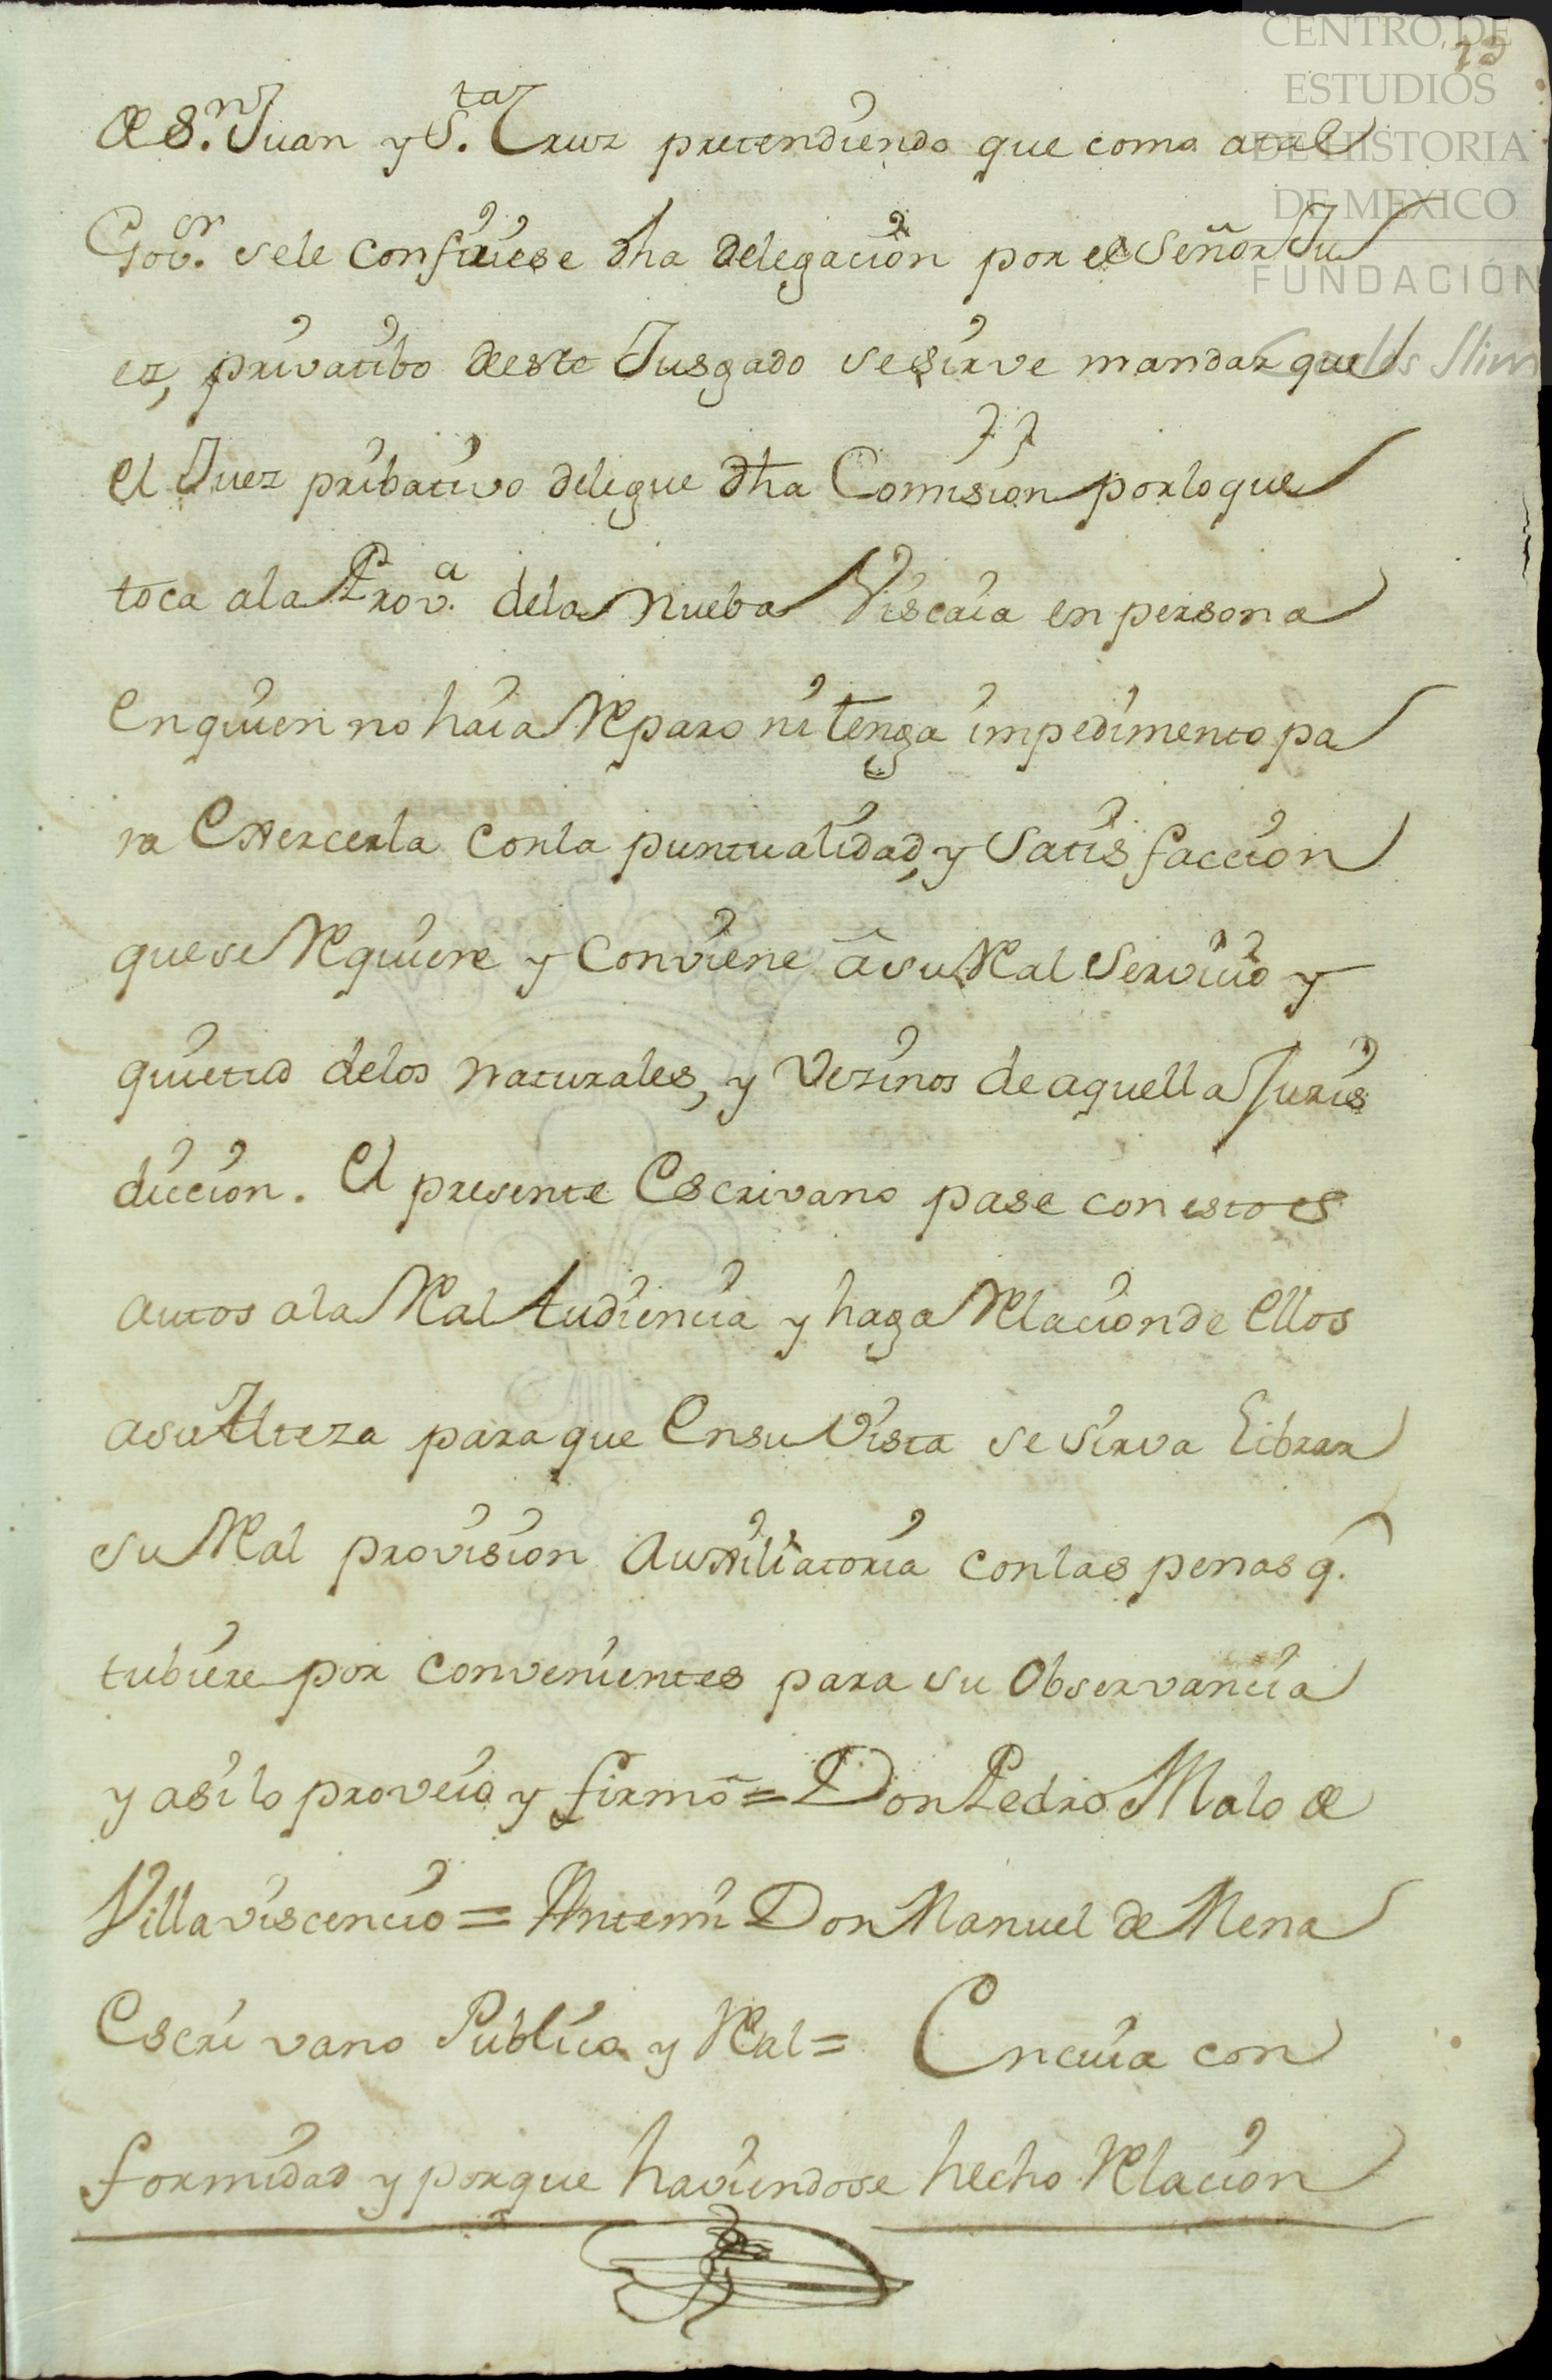 CENTRO DE
ESTUDIOS
DE HISTORIA
DE MEXICO
FUNDACIÓN
Carlos Slim
de S.n Juan y S.ta Cruz pretendiendo que como atal
Gov.or sele confiriese dha delegacion por el Señor Ju
ez, privatibo deeste Jusgado sesirve mandar que
el Juez pribativo delegue dha Comision porloque
toca ala Prov.a dela Nueba Viscaia en persona
Enquien no haia Reparo ni tenga impedimento pa
ra Exercerla conla puntualidad, y Satisfaccion
que se Requiere y Conviene â su Real Servicio y
quietud delos Naturales, y Vezinos de aquella Juris
diccion. El presente Escrivano pase con estos
autos ala Real Audiencia y haga Relacion de Ellos
asu Alteza para que Ensu Vista se sirva Librar
su Real provision Auxiliatoria conlas penas q.
tubiere por convenientes para su Observancia
y asi lo proveio y firmó = Don Pedro Malo de
Villaviscencio = Antemi Don Manuel de Mena
Escrivano Publico y Real = Encuia con
formidad y porque haviendose hecho Relacion